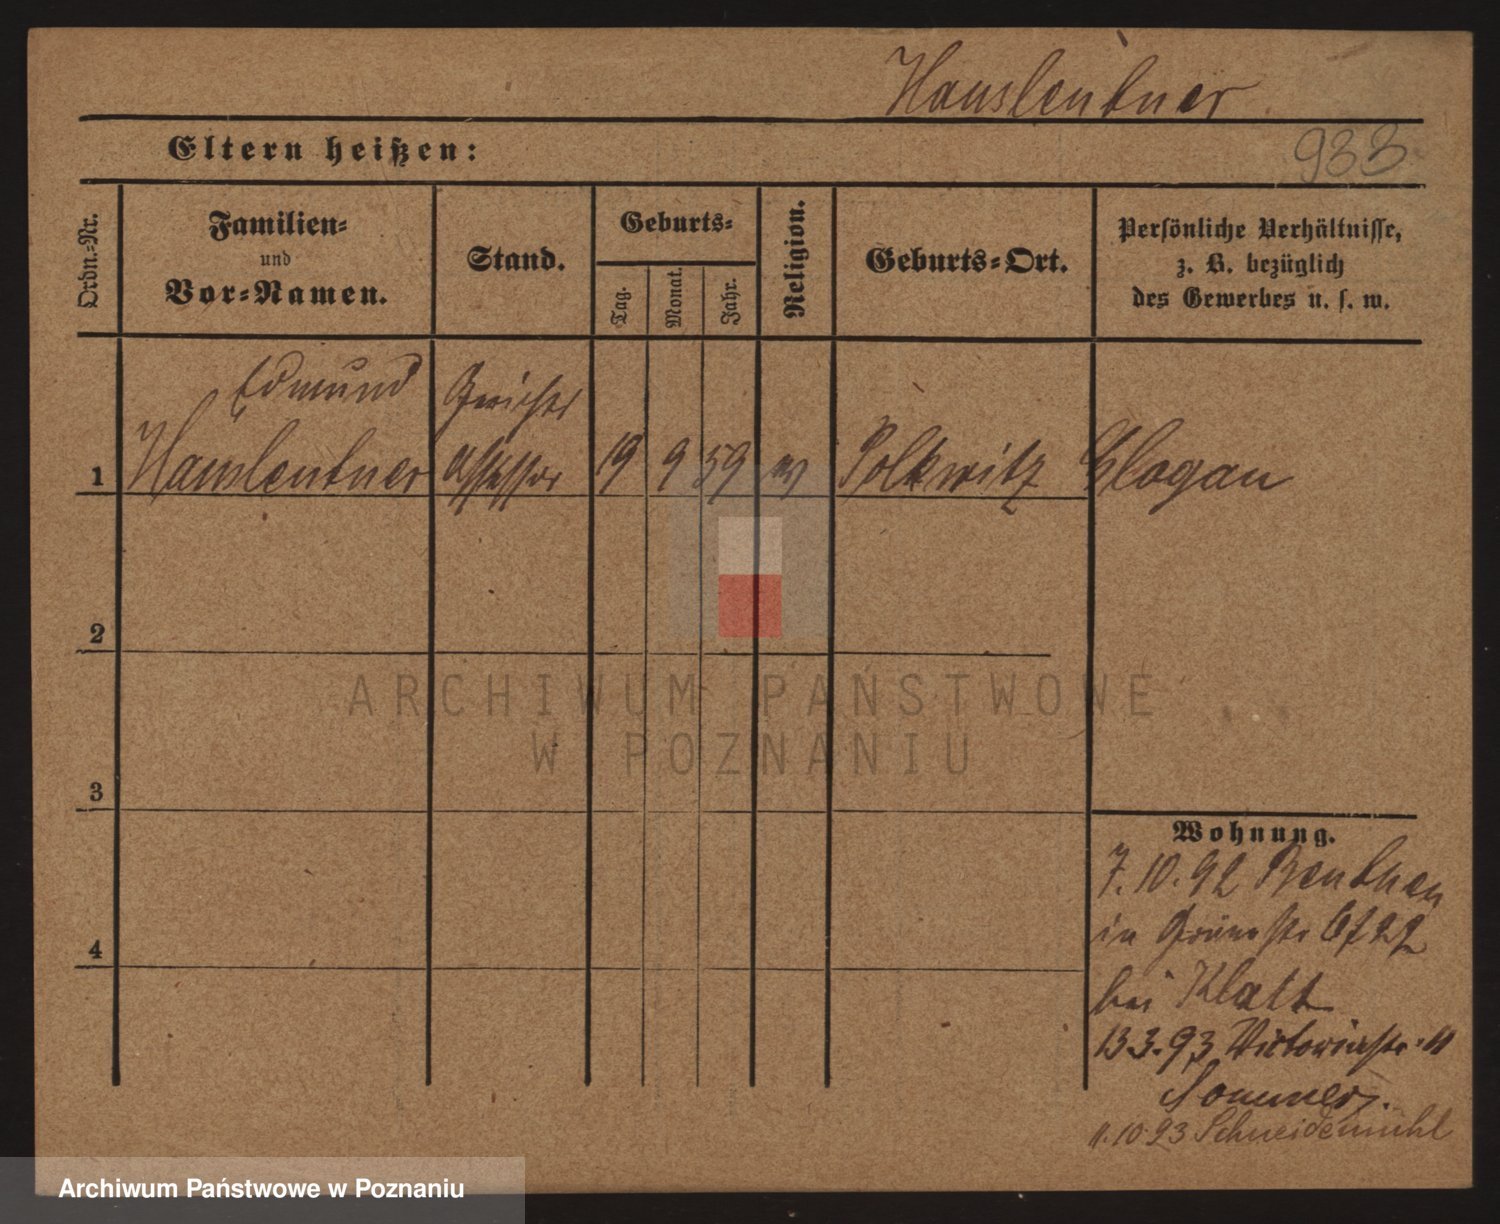 Hausleutner
Eltern heißen:
933
Ordn.=Nr.
Familien=
und
Vor=Namen.
Stand.
Geburts=
Tag.
Monat.
Jahr.
Religion.
Geburts=Ort.
Persönliche Verhältnisse,
z. B. bezüglich
des Gewerbes u. s. w.
Edmund Gerichts
1 Hausleutner assessor 19 9 59 ev Polkwitz Glogau
2
ARCHIWUM PAŃSTWOWE
W POZNANIU
3
Wohnung.
7.10.92 Beuthen
in
4
bei Klatt
13.3.93 Victoriastr. 11
Sommer.
11.10.93 Schneidemühl
Archiwum Państwowe w Poznaniu